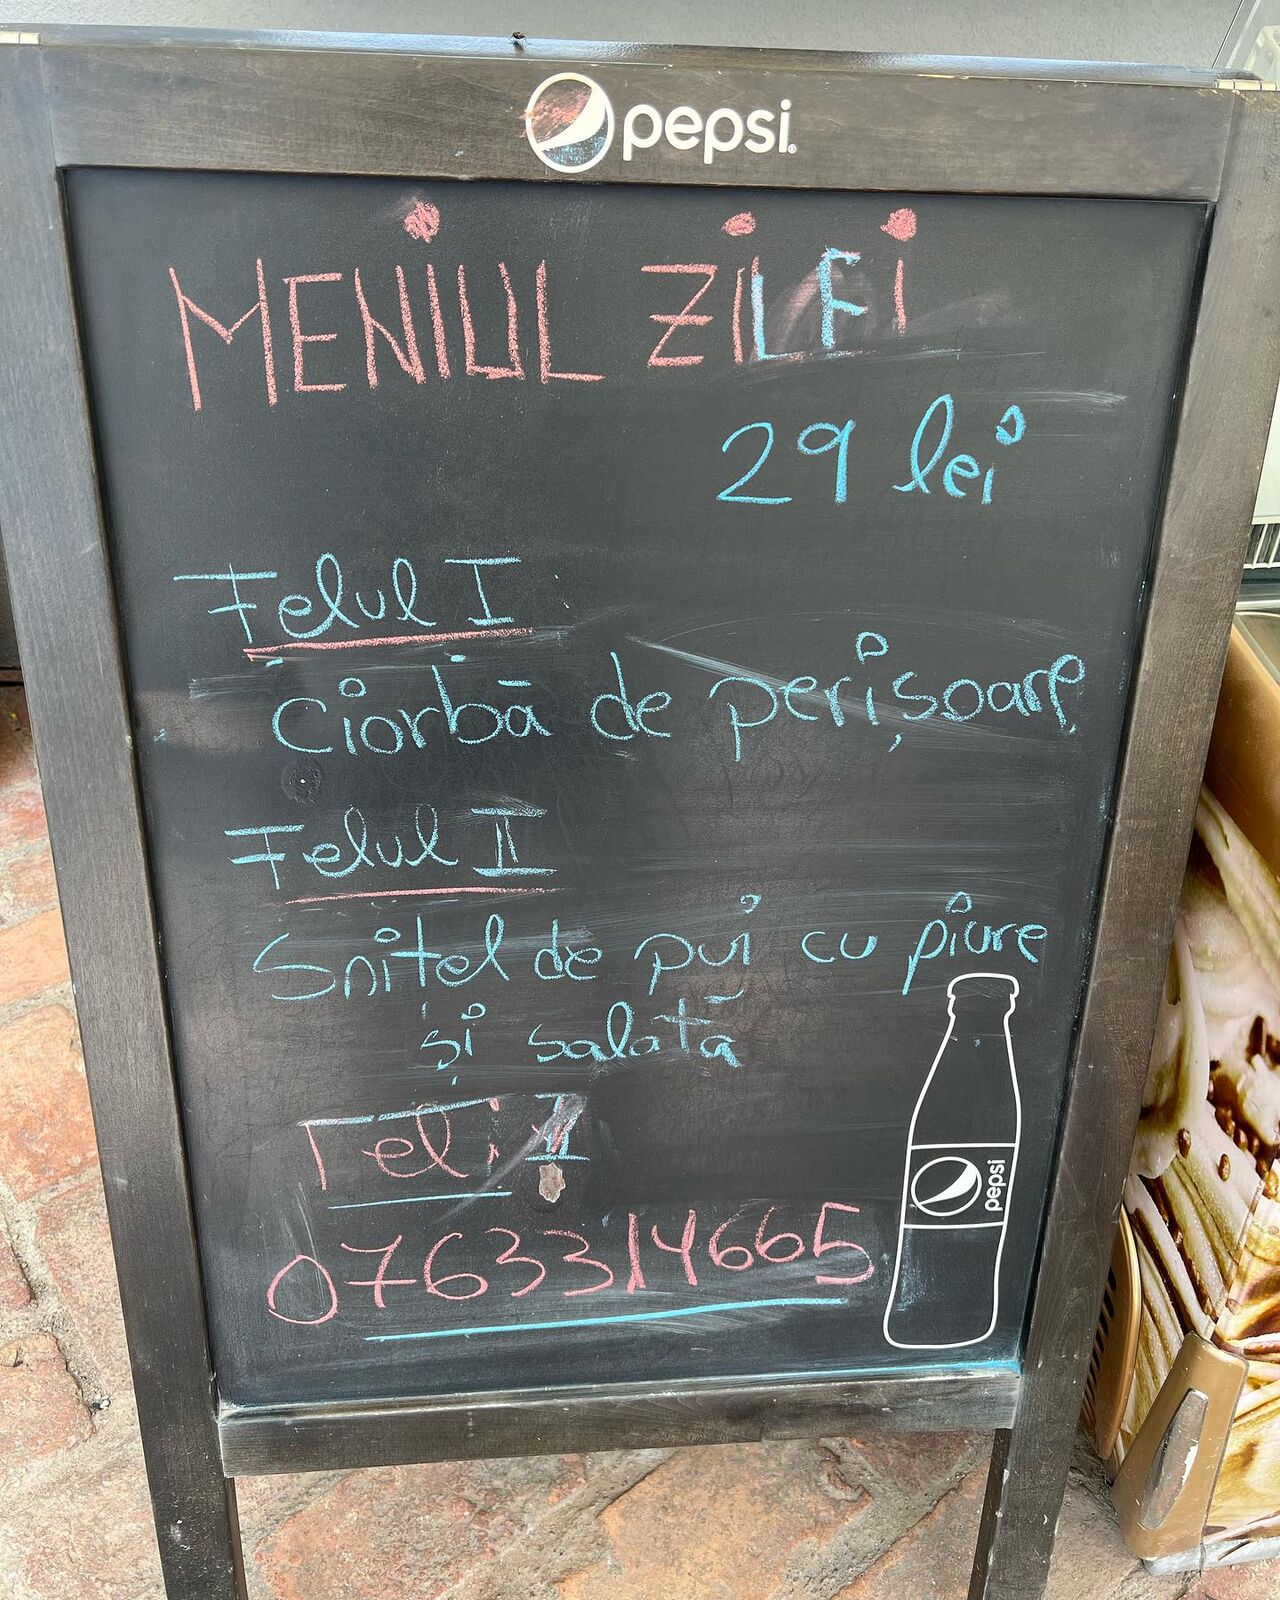 pepsi
MENIUL ZILEI
29 lei
Felul I
Ciorbă de perișoare
Felul II
Snitel de pui cu piure
și salată
0763314665
pepsi